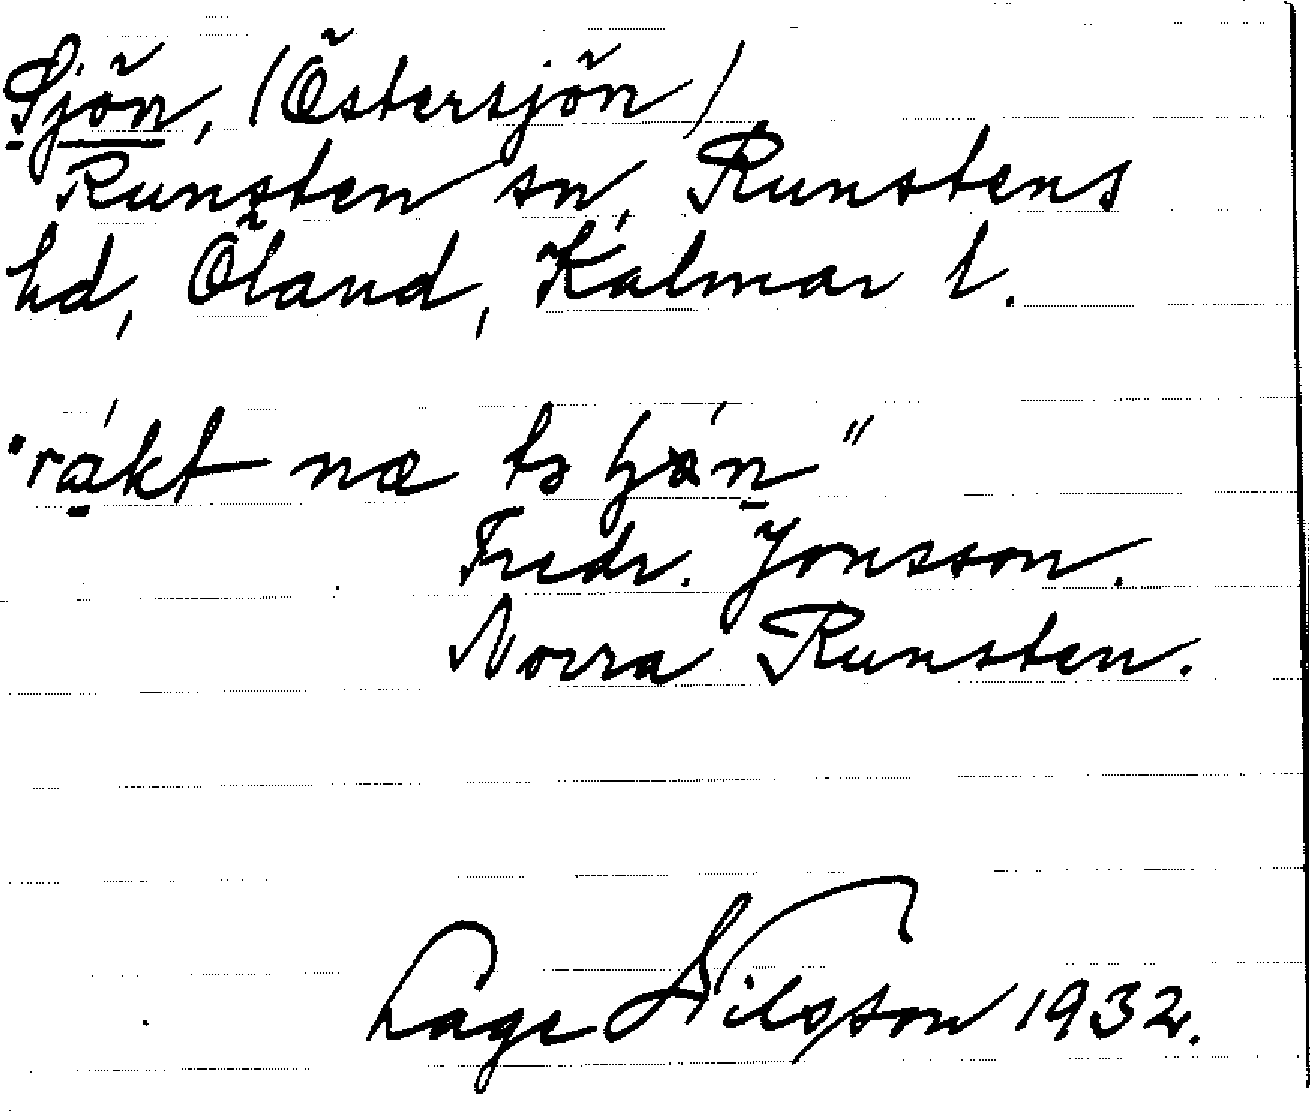 Sjön, (Östersjön)
Runsten sn, Runstens
hd, Öland, Kalmar l.
"räkt næ
Fredr. Jonsson.
Norra Runsten.
Lage Nilsson 1932.